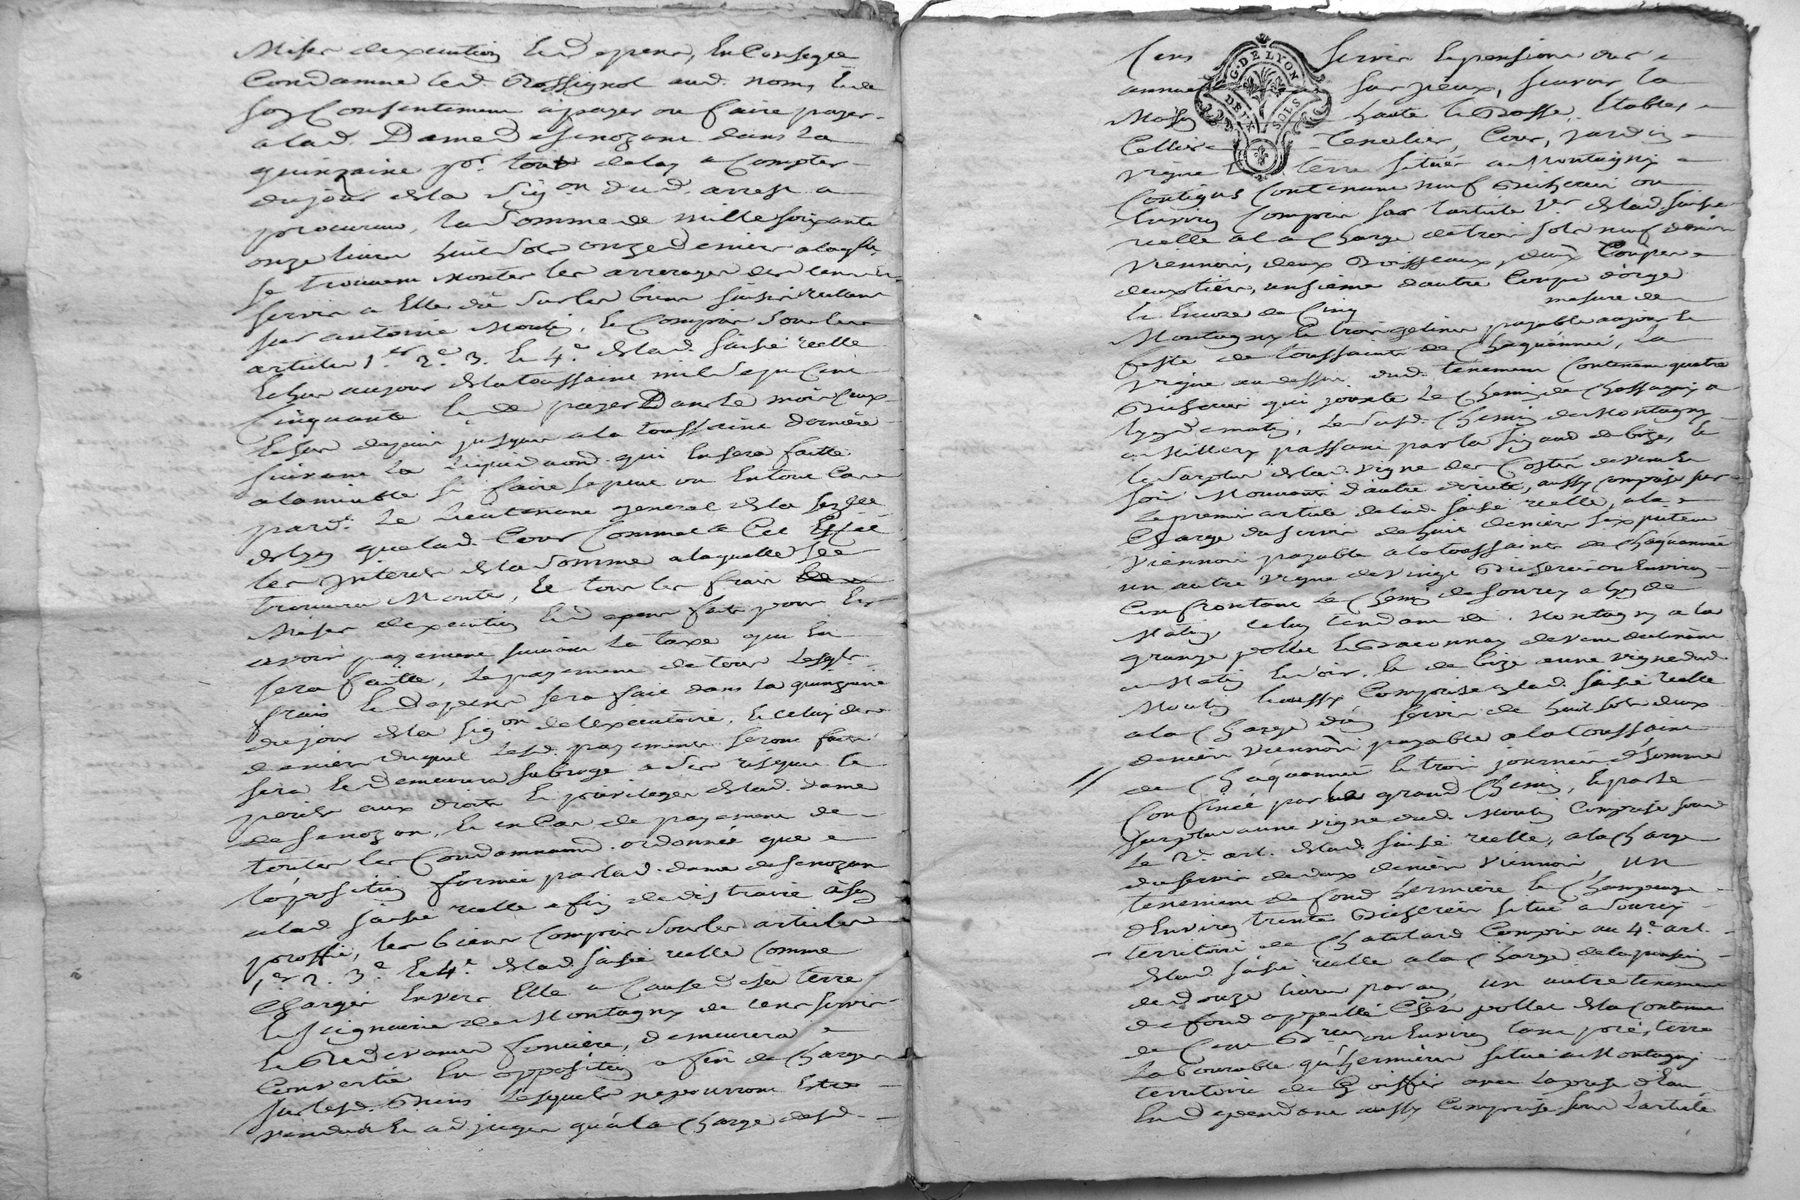 Mises dexecution Et depens, En Conseqce
Condamne led. Rossignol aud. nom, Et de
soy Consentement a payer ou faire payer
a lad. Dame de senozan dans la
quinzaine pr. tout delay a Compter
du jour de la sigon dud. arrest a
procureur, la somme de mille soixante
onze livres huit sols onze deniers a laqlle
se trouvent monter les arrerages des cens et
servis a Elle dû sur les biens saisis reellemt
sur antoine Moulin, Et Compris sous les
articles 1er 2e 3. Et 4e de lad. saisie reelle
Echus au jour de la toussaint mil sept Cent
Cinquante Et de payer Dans le mois Ceux
Echus depuis jusques a la toussaint derniere
suivant la liquidaond. qui En sera faitte
a lamiable si faire se peut ou En tout Cas
pardt. Le Lieutenant general de la senéée
de lyon que lad. Cour Commet a Cet Effet
les Interets de la somme a laquelle se
trouvera Monter, Et tous les frais
Mises dexecution Et depens faits pour En
avoir payement suivant la taxe qui En
sera faitte, Le payement de tous lesqls
frais Et depens sera fait dans la quinzaine
du jour de la sigon de lexecutoire, Et Celuy des
deniers duquel lesd. payements seront faits
sera Et demeurera subrogé a ses risques Et
perils aux droits Et privileges de lad. dame
de senozan, Et en Cas de payement de
toutes les Condamnaond. ordonné que
loposition formée par lad. dame de senozan
a lad. saisie reelle afin de distraire à son
proffit, les biens Compris sous les articles
1er 2. 3e Et 4e de lad. saisie reelle comme
Chargés Envers Elle a Cause de sa terre
Et seigneurie de Montagny de cens servis
Et Redevances foncieres, demeurera
Convertie En opposition afin de Charges
sur lesd. Biens Lesquels ne pourront Estre
vendus Et adjugés qu'à la Charge desd.
Cens Servis Et pensions
annuels sçavoir la
Maison haute Et Basse, Etables
Cellier Tenalier, Cour, jardin
vigne terre situés a Montagny
Contigus Contenant neuf Bicherées ou
Environ Compris sous larticle 1er de lad. saisie
reelle a la Charge de trois sols neuf deniers
Viennois, deux Boisseaux, deux Coupes
deux tiers, un sixième dautre Coupe d'orge
Et Encore de Cinq mesure de
Montagny Et trois gelines payable au jour Et
feste de toussaints de Chaque année, La
vigne au dessus dud. tenement Contenant quatre
Bicherées qui jouxte Le Chemin de Chassagny a
lyon de matin, Le susd. Chemin de Montagny
a Millery passant par la de bize, Et
Le surplus de lad. vigne des Costes de vent Et
soir Mouvant d'autre directe, aussy Comprise sur
Le premier article de lad. saisie reelle, a la
Charge du servis de huit deniers six pites
viennois payable a la toussaints de Chaque année
un autre vigne de vingt Bicherées ou Environ
Confrontant Le Chemin de sourcy a lyon de
Matin Celuy tendant de Montagny a la
grange pollet Et Braconnay de vent
Et soir, Et de bize a une vigne dud.
Moulin aussy Comprise en lad. saisie reelle
a la Charge d'un servis de huit sols deux
deniers viennois payable a la toussaint
de Chaque année Et trois journées d'homme
Confinée par Le grand Chemin, Et par le
surplus a une vigne dud. Moulin Comprise sous
Le 2e art. de lad. saisie reelle, a la Charge
du servis de deux deniers viennois, un
tenement de fond hermière Et Champeage
d'Environ trente Bicherées situé a Sourcy
territoire de Chatelard Compris au 4e art.
de lad. saisie reelle a la Charge de la pension
de douze livres par an, un autre tenement
de fond appellé Chez pollet de la Contenue
de Cent Brées ou Environ tant pré, terre
Labourable qu'hermières situé a Montagny
territoire de Goiffy avec La prise d'Eau
En dependant aussy Comprise sous l'article
G. DE LYON
DEUX SOLS